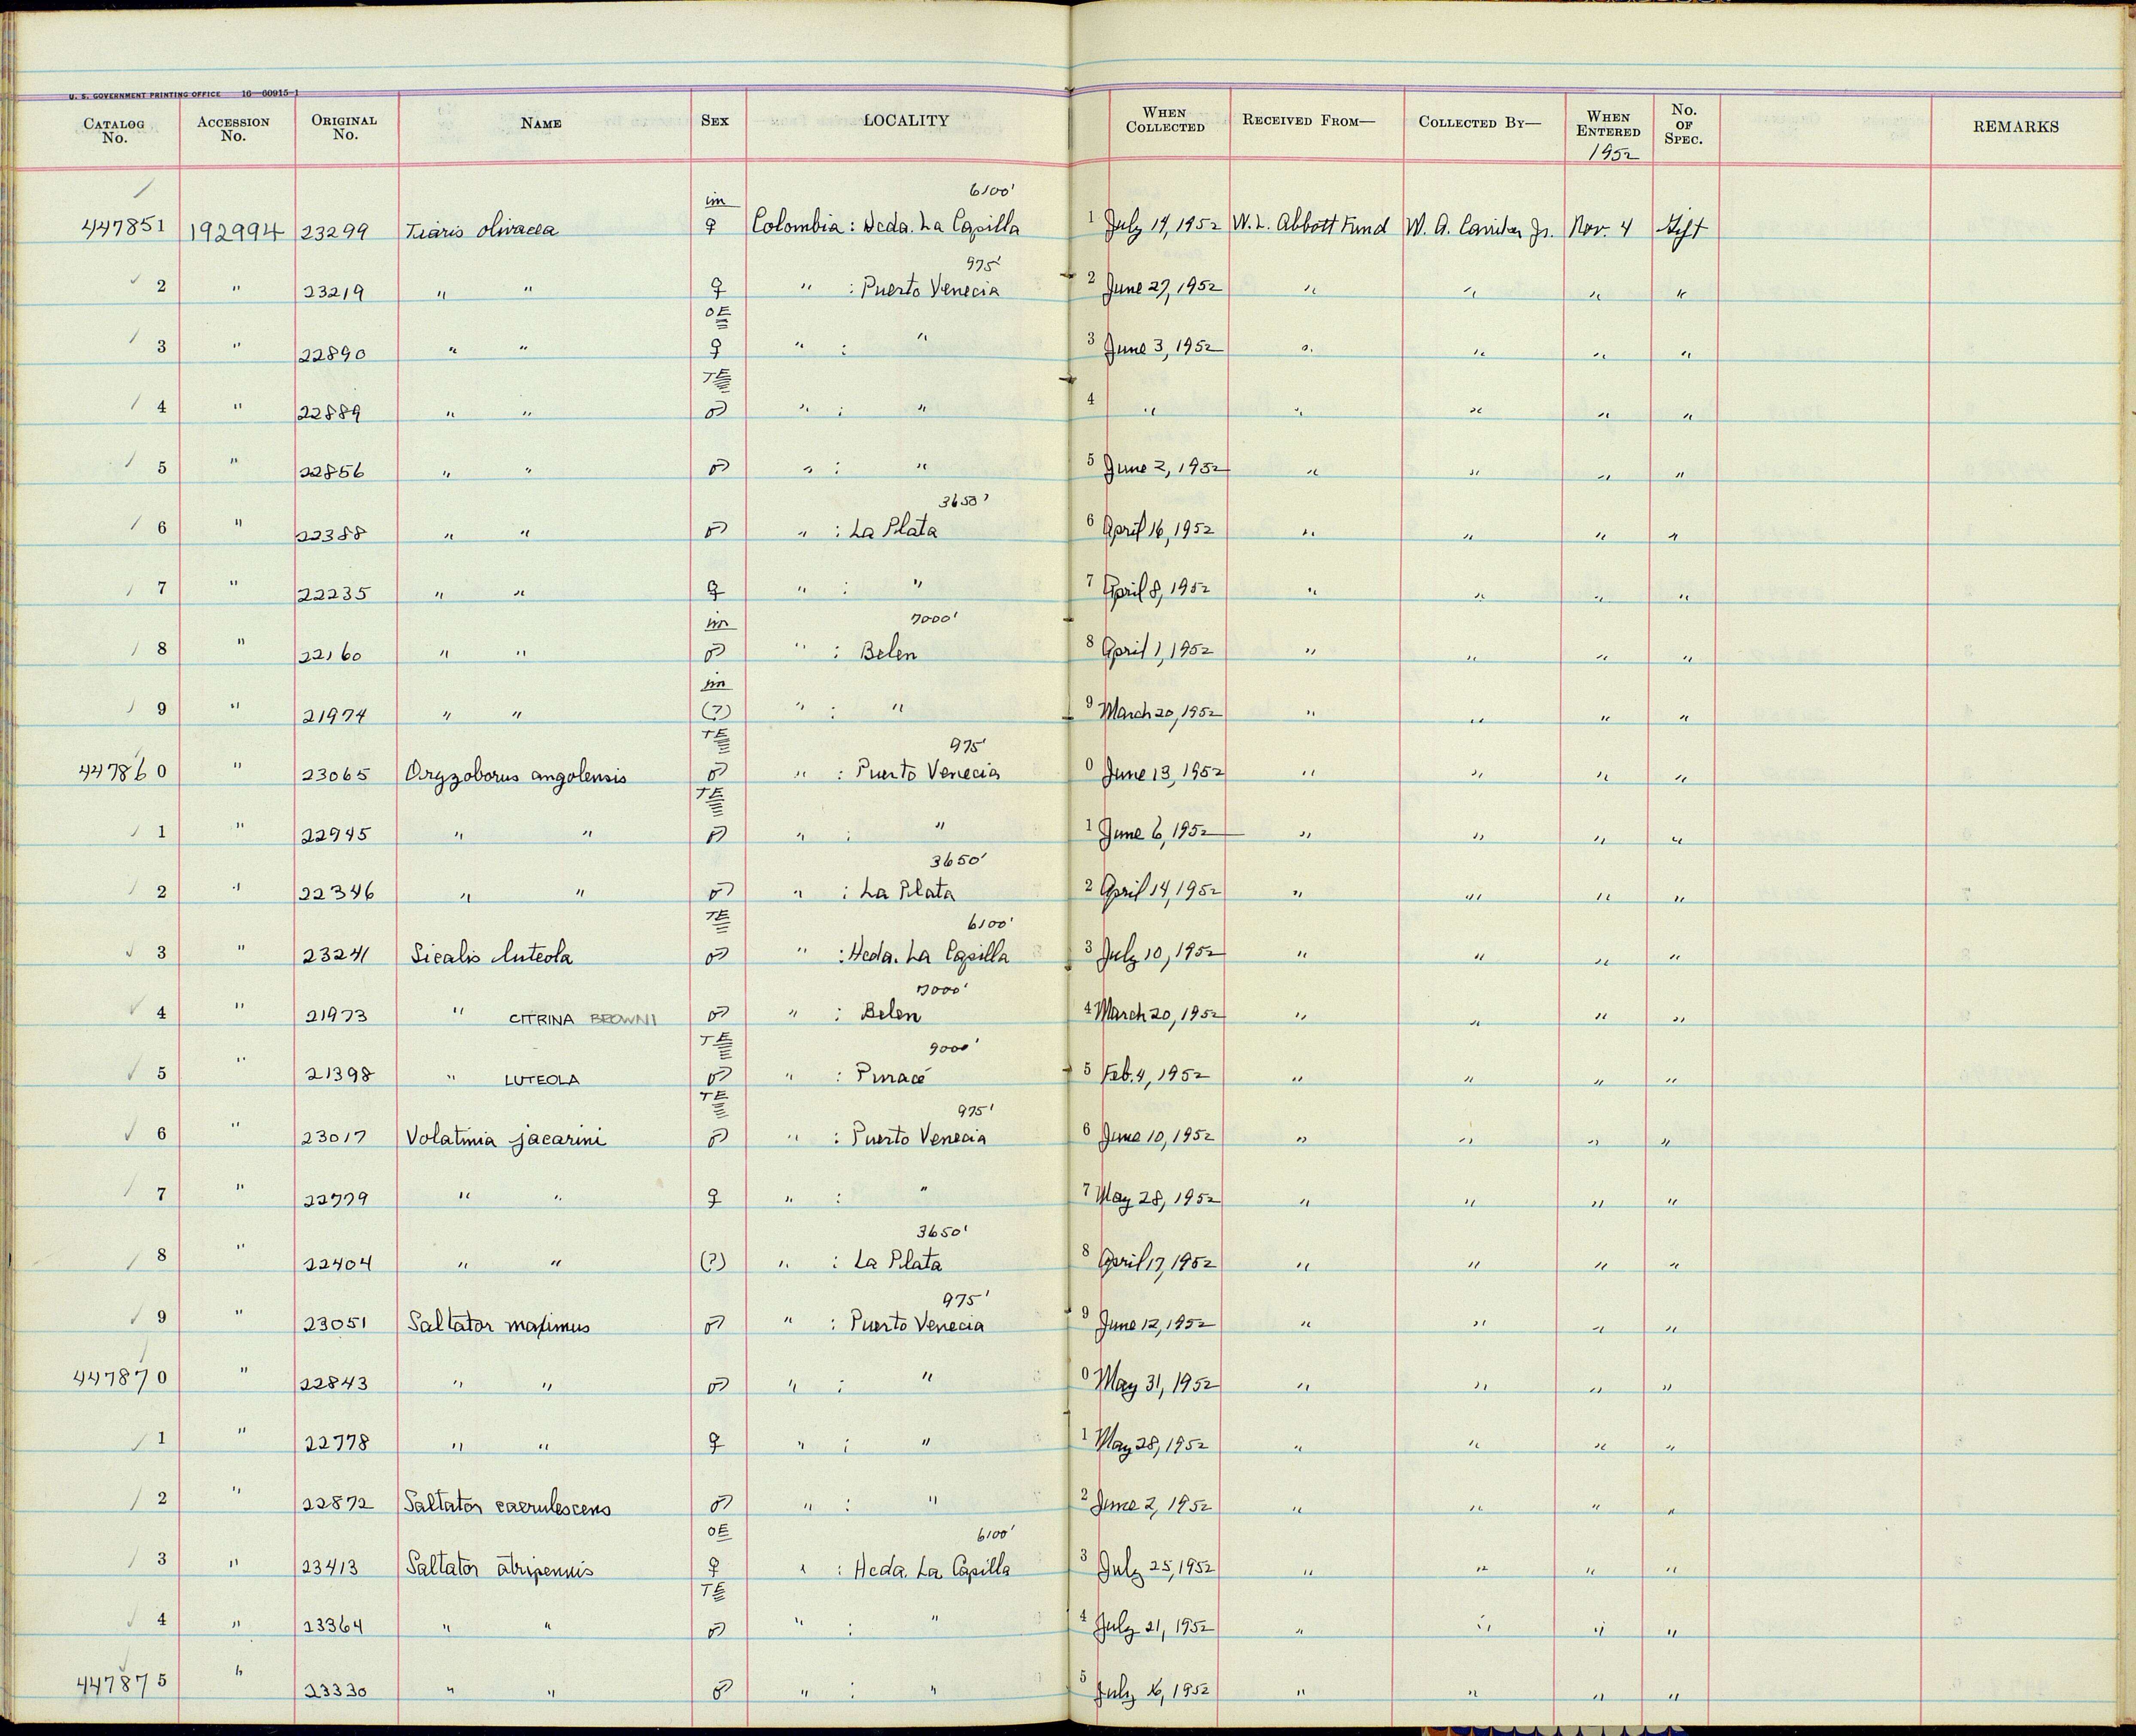 U. S. GOVERNMENT PRINTING OFFICE 16—60915-1
CATALOG No. ACCESSION No. ORIGINAL No. NAME SEX LOCALITY WHEN COLLECTED RECEIVED FROM— COLLECTED BY— WHEN ENTERED 1952 No. OF SPEC. REMARKS
im 6100'
447851 192994 23299 Tiaris olivacea ♀ Colombia : Hcda. La Capilla 1 July 14, 1952 W. L. Abbott Fund W. A. Carriker Jr. Nov. 4 Gift
975'
2 " 23219 " " ♀ " : Puerto Venecia 2 June 27, 1952 " " " "
OE
3 " 22890 " " ♀ " : " 3 June 3, 1952 " " " "
TE
4 " 22889 " " ♂ " : " 4 " " " " "
5 " 22856 " " ♂ " : " 5 June 2, 1952 " " " "
3650'
6 " 22388 " " ♂ " : La Plata 6 April 16, 1952 " " " "
7 " 22235 " " ♀ " : " 7 April 8, 1952 " " " "
im 7000'
8 " 22160 " " ♂ " : Belen 8 April 1, 1952 " " " "
im
9 " 21974 " " (?) " : " 9 March 20, 1952 " " " "
TE 975'
447860 " 23065 Oryzoborus angolensis ♂ " : Puerto Venecia 0 June 13, 1952 " " " "
TE
1 " 22945 " " ♂ " : " 1 June 6, 1952 " " " "
3650'
2 " 22346 " " ♂ " : La Plata 2 April 14, 1952 " " " "
TE 6100'
3 " 23241 Sicalis luteola ♂ " : Hcda. La Capilla 3 July 10, 1952 " " " "
7000'
4 " 21973 " CITRINA BROWNI ♂ " : Belen 4 March 20, 1952 " " " "
TE 9000'
5 " 21398 " LUTEOLA ♂ " : Puracé 5 Feb. 4, 1952 " " " "
TE 975'
6 " 23017 Volatinia jacarini ♂ " : Puerto Venecia 6 June 10, 1952 " " " "
7 " 22779 " " ♀ " : " 7 May 28, 1952 " " " "
3650'
8 " 22404 " " (?) " : La Plata 8 April 17, 1952 " " " "
975'
9 " 23051 Saltator maximus ♂ " : Puerto Venecia 9 June 12, 1952 " " " "
447870 " 22843 " " ♂ " : " 0 May 31, 1952 " " " "
1 " 22778 " " ♀ " : " 1 May 28, 1952 " " " "
2 " 22872 Saltator caerulescens ♂ " : " 2 June 2, 1952 " " " "
OE 6100'
3 " 23413 Saltator atripennis ♀ " : Hcda. La Capilla 3 July 25, 1952 " " " "
TE
4 " 23364 " " ♂ " : " 4 July 21, 1952 " " " "
447875 " 23330 " " ♂ " : " 5 July 16, 1952 " " " "